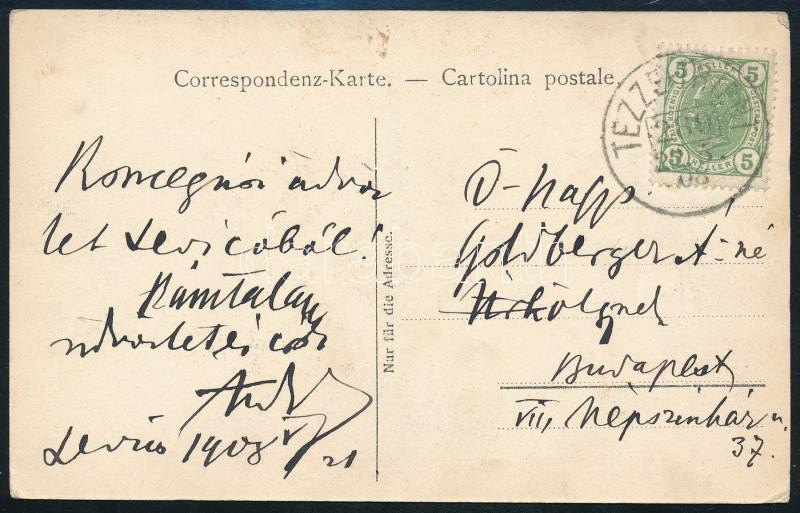 Correspondenz-Karte. — Cartolina postale.
TEZZE
08
5 HELLER 5
5 HELLER 5
Roncegnói üdvöz
let Levicóból!
Számtalan
üdvözlet
Levico 1908 V/21
Nur für die Adresse.
Ő-Nagys
Goldberger A-né
Úrhölgynek
Budapest
VIII, Népszinház u.
37.